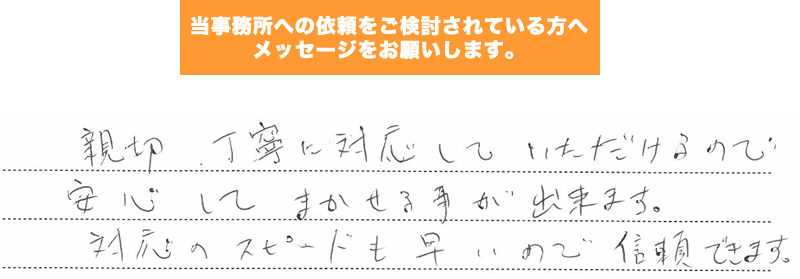 当事務所への依頼をご検討されている方へ
メッセージをお願いします。
親切、丁寧に対応していただけるので
安心してまかせる事が出来ます。
対応のスピードも早いので信頼できます。